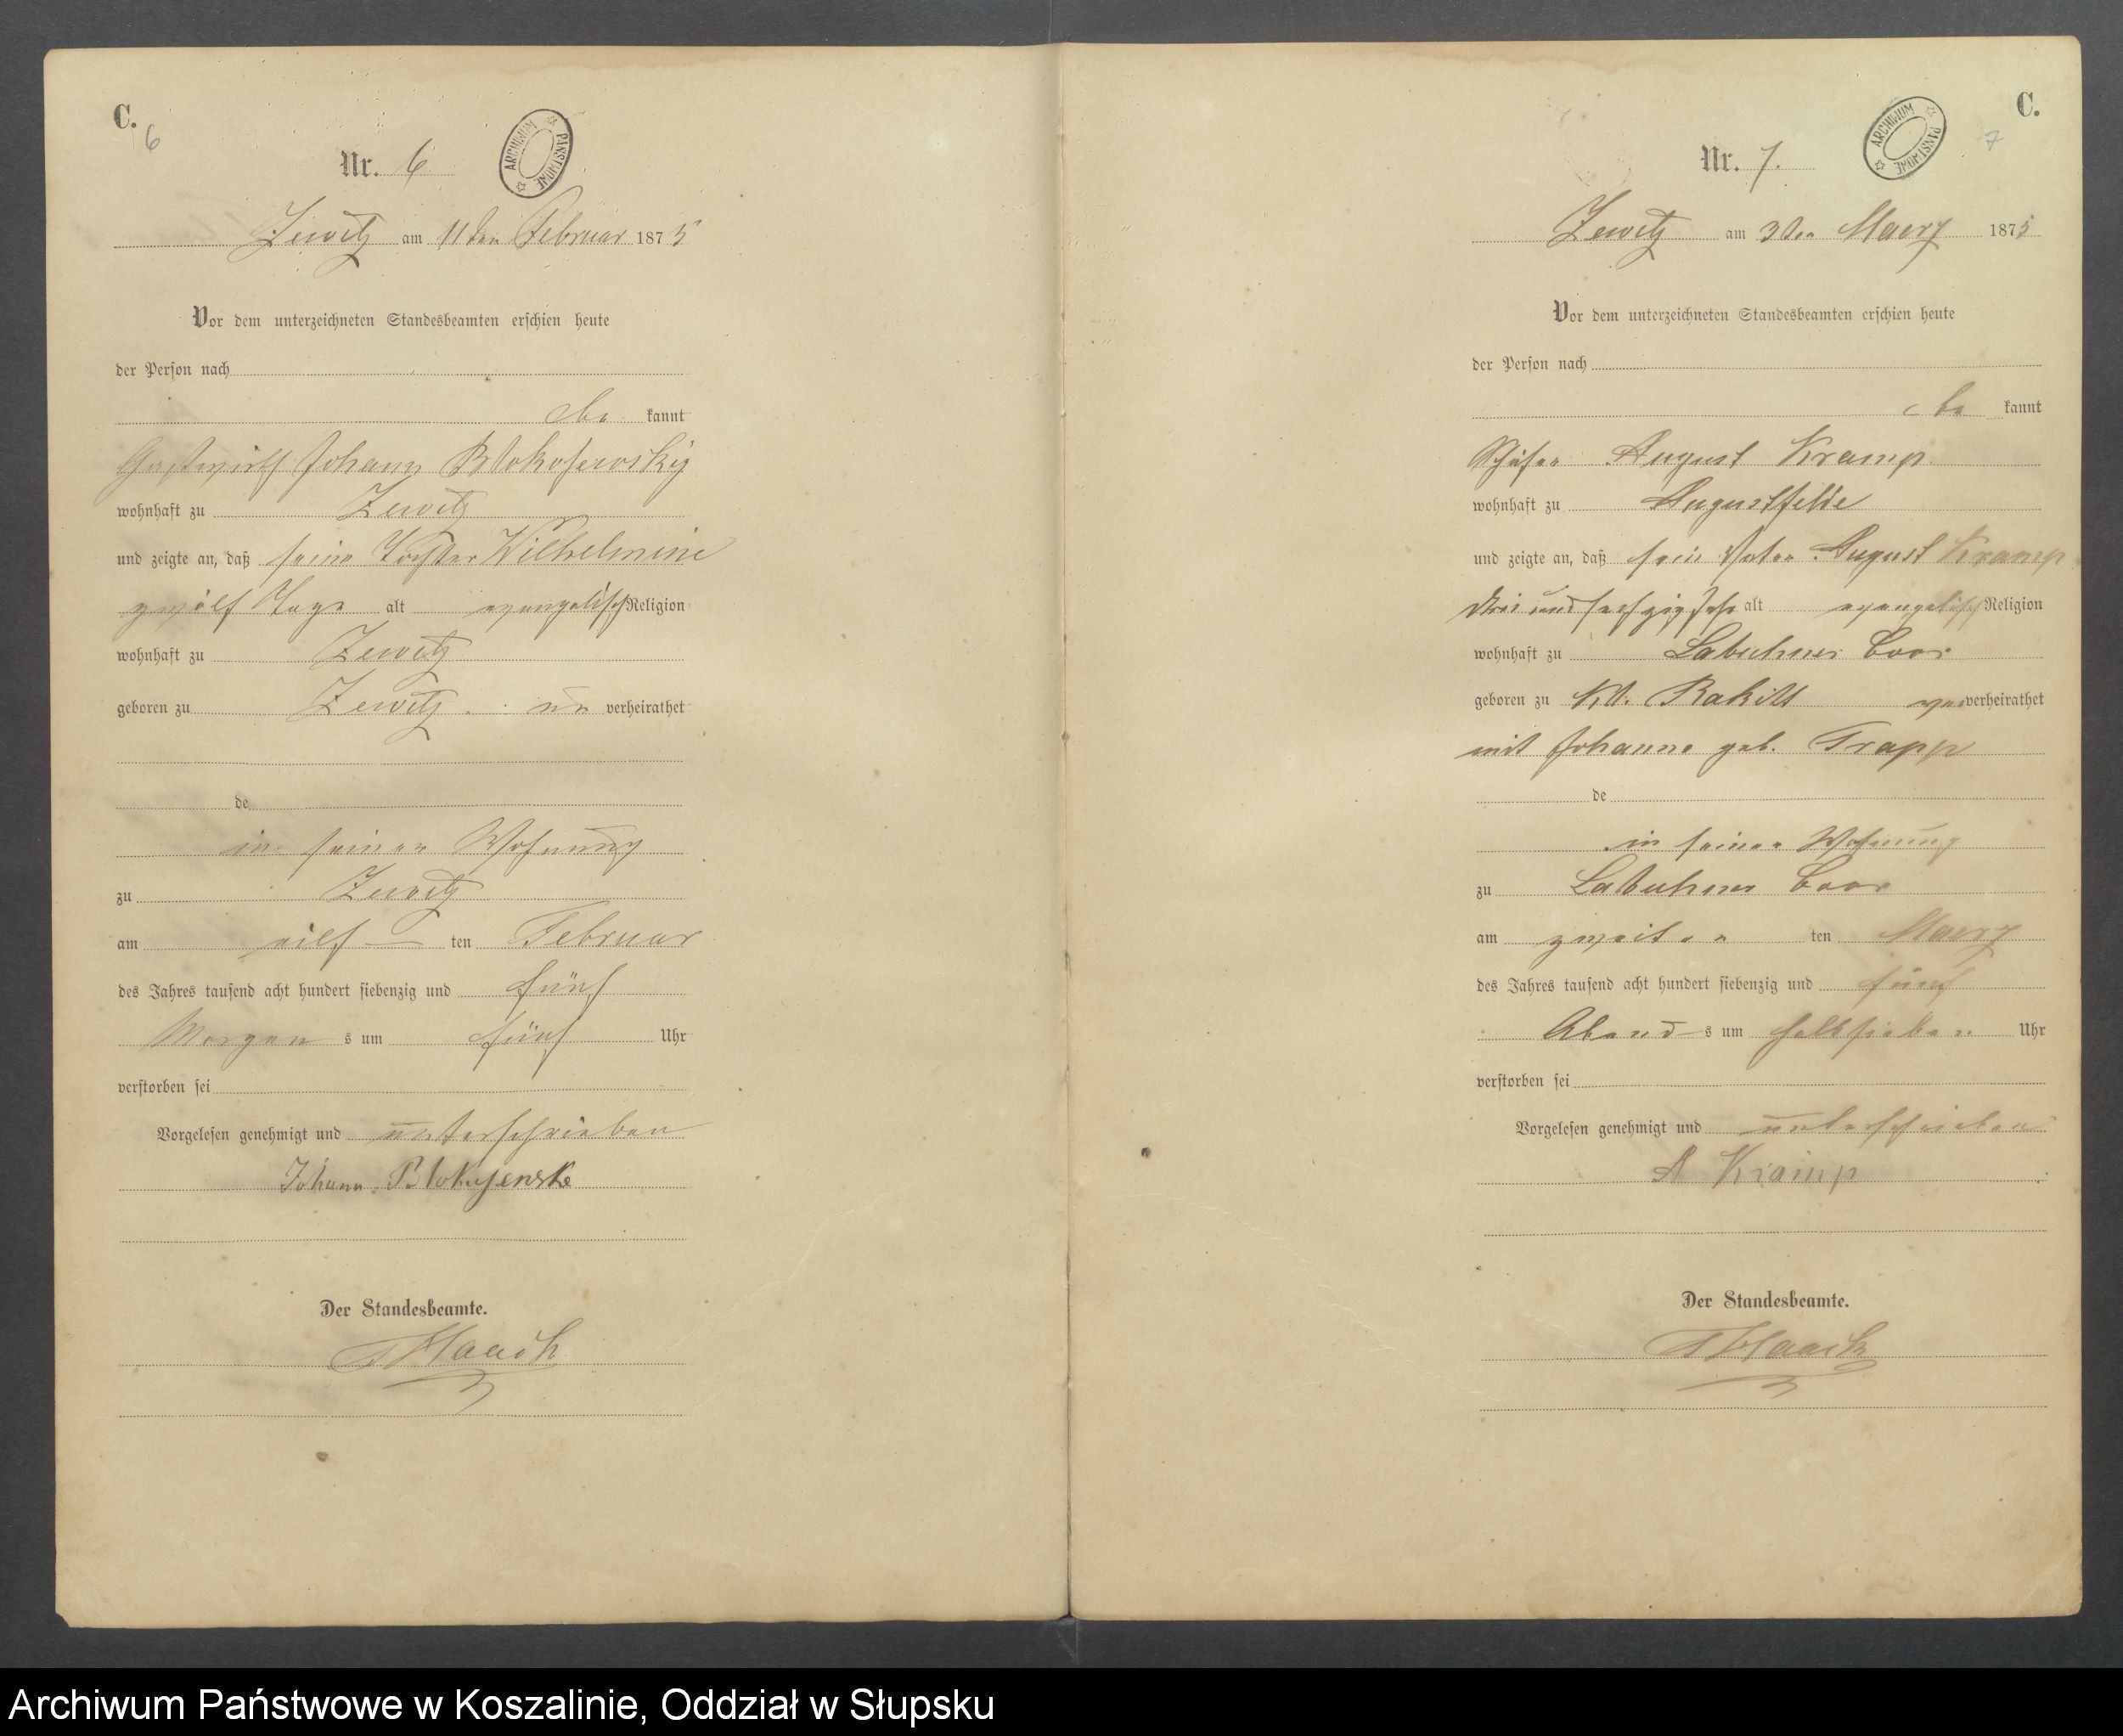 C.
6
Nr. 6
ARCHIWUM PAŃSTWOWE
Zewitz am 11ten Februar 1875
Vor dem unterzeichneten Standesbeamten erschien heute
der Person nach
be kannt
Gastwirth Johann Blokosewsky
wohnhaft zu Zewitz
und zeigte an, daß seine Tochter Wilhelmine
zwölf Tage alt evangelisch Religion
wohnhaft zu Zewitz
geboren zu Zewitz un verheirathet
de
in seiner Wohnung
zu Zewitz
am eilf ten Februar
des Jahres tausend acht hundert siebenzig und fünf
Morgen s um fünf Uhr
verstorben sei
Vorgelesen genehmigt und unterschrieben
Johann
Der Standesbeamte.
Haack
C.
7
Nr. 7.
ARCHIWUM PAŃSTWOWE
Zewitz am 3ten Maerz 1875
Vor dem unterzeichneten Standesbeamten erschien heute
der Person nach
be kannt
Schäfer August Kramp
wohnhaft zu Augustfelde
und zeigte an, daß sein Vater August Kramp
drei und sechzig Jahr alt evangelisch Religion
wohnhaft zu Labuhner
geboren zu Kl. Rakitt verheirathet
mit Johanne geb. Trapp
de
in seiner Wohnung
zu Labuhner
am zweiten ten Maerz
des Jahres tausend acht hundert siebenzig und fünf
Abend s um halb sieben Uhr
verstorben sei
Vorgelesen genehmigt und unterschrieben
A Kramp
Der Standesbeamte.
Haack
Archiwum Państwowe w Koszalinie, Oddział w Słupsku